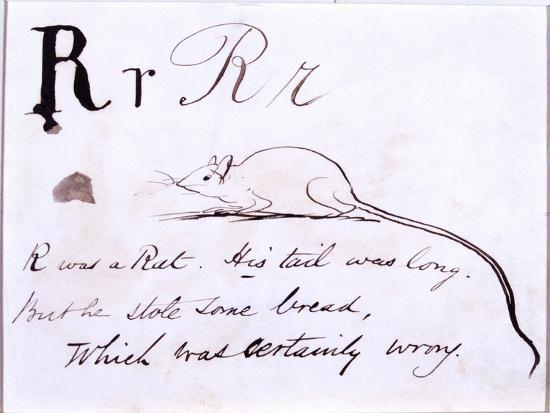 R r R r
R was a Rat. His tail was long.
But he stole some bread,
Which was certainly wrong.